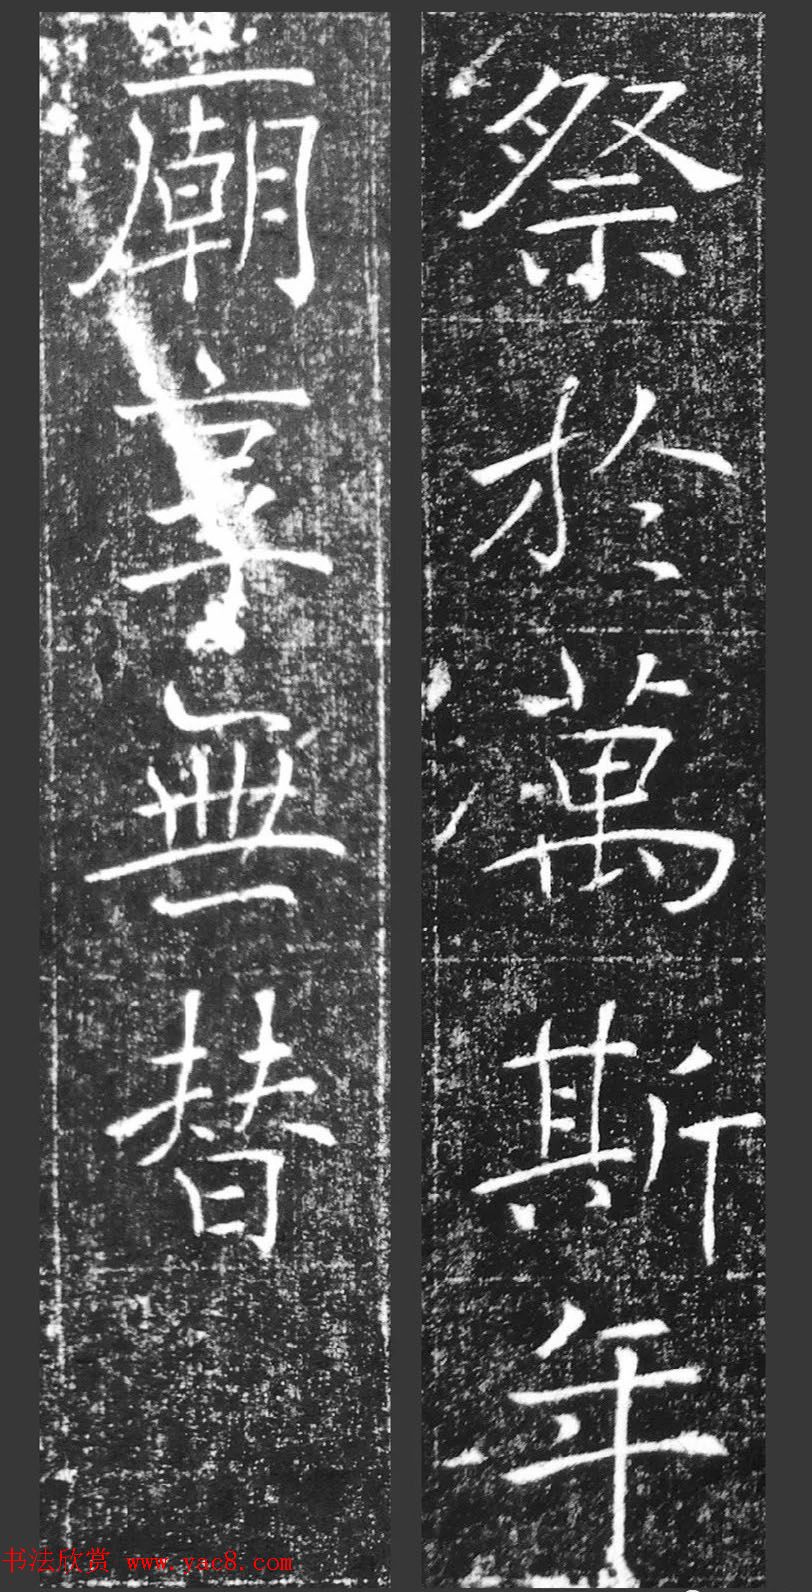 祭於萬斯年
廟享無替
书法欣赏 www.yac8.com